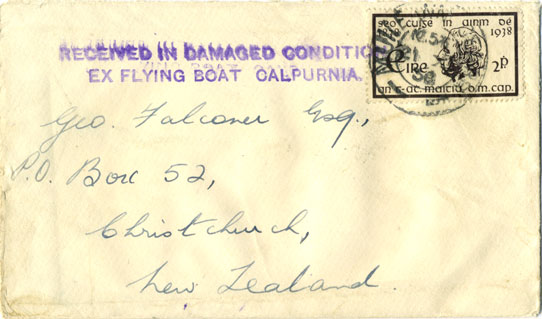 RECEIVED IN DAMAGED CONDITION
EX FLYING BOAT CALPURNIA.
1938
éire 2p
an t-at. maitiú o.m.cap.
Geo. Falconer Esq.,
P.O. Box 52,
Christchurch,
New Zealand.